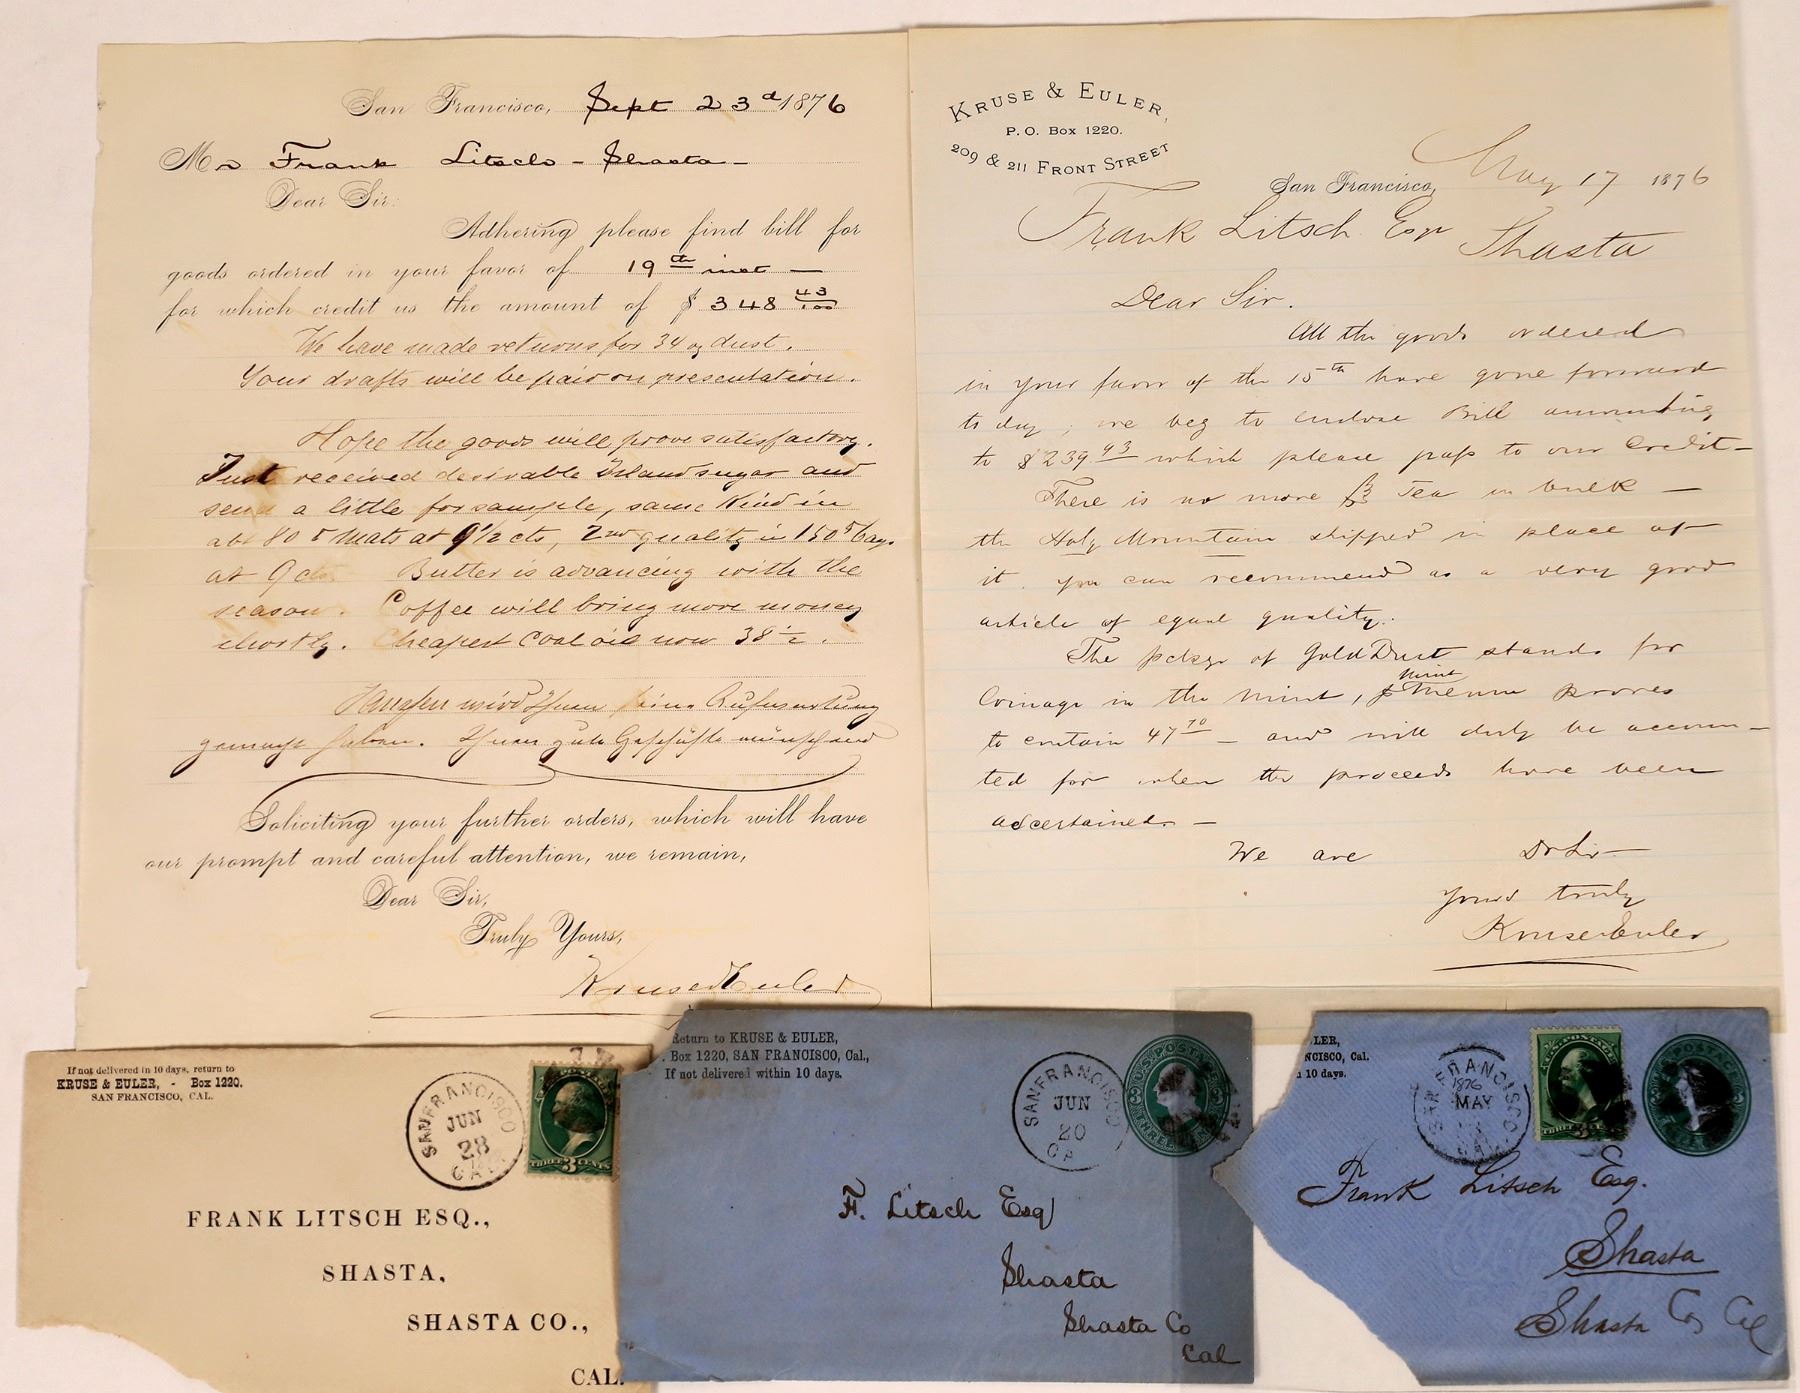 San Francisco, Sept 23d 1876
Mr Frank Litsch - Shasta -
Dear Sir:
Adhering please find bill for
goods ordered in your favor of 19th inst —
for which credit us the amount of $ 348 43/100
We have made returns for 34 oz dust.
Your drafts will be paid on presentation.
Hope the goods will prove satisfactory.
Just received desirable Island sugar and
send a little for sample, same kind in
abt 80 lb mats at 9 1/2 cts, 2nd quality in 150 lb bags.
at 9 cts Butter is advancing with the
season. Coffee will bring more money
shortly. Cheapest Coal oil now 38 1/2.
wird Ihnen seine Aufwartung
gemacht haben. Ihnen gute Geschäfte wünschend
Soliciting your further orders, which will have
our prompt and careful attention, we remain,
Dear Sir,
Truly Yours,
Kruse & Euler
KRUSE & EULER,
P. O. Box 1220.
209 & 211 FRONT STREET
San Francisco, May 17 1876
Frank Litsch Esqr Shasta
Dear Sir.
All the goods ordered
in your favor of the 15th have gone forward
to day, we beg to enclose Bill amounting
to $239 43 which please pass to our Credit —
There is no more Tea in bulk —
the Holy Mountain shipped in place of
it you can recommend as a very good
article of equal quality.
The pckge of Gold Dust stands for
Coinage in the Mint, Mint proves
to contain 47 70 — and will duly be accoun-
ted for when the proceeds have been
ascertained. —
We are Dr Sir
Yours truly
Kruse & Euler
If not delivered in 10 days, return to
KRUSE & EULER, - Box 1220.
SAN FRANCISCO, CAL.
SAN FRANCISCO
JUN
28
CAL
THREE 3 CENTS
FRANK LITSCH ESQ.,
SHASTA,
SHASTA CO.,
CAL.
Return to KRUSE & EULER,
Box 1220, SAN FRANCISCO, Cal.,
If not delivered within 10 days.
SAN FRANCISCO
JUN
20
CA
U.S. POSTAGE
THREE CENTS
F. Litsch Esq
Shasta
Shasta Co
Cal
LER,
NCISCO, Cal.
10 days.
SAN FRANCISCO
1876
MAY
CAL
Frank Litsch Esq.
Shasta
Shasta Co, Cal